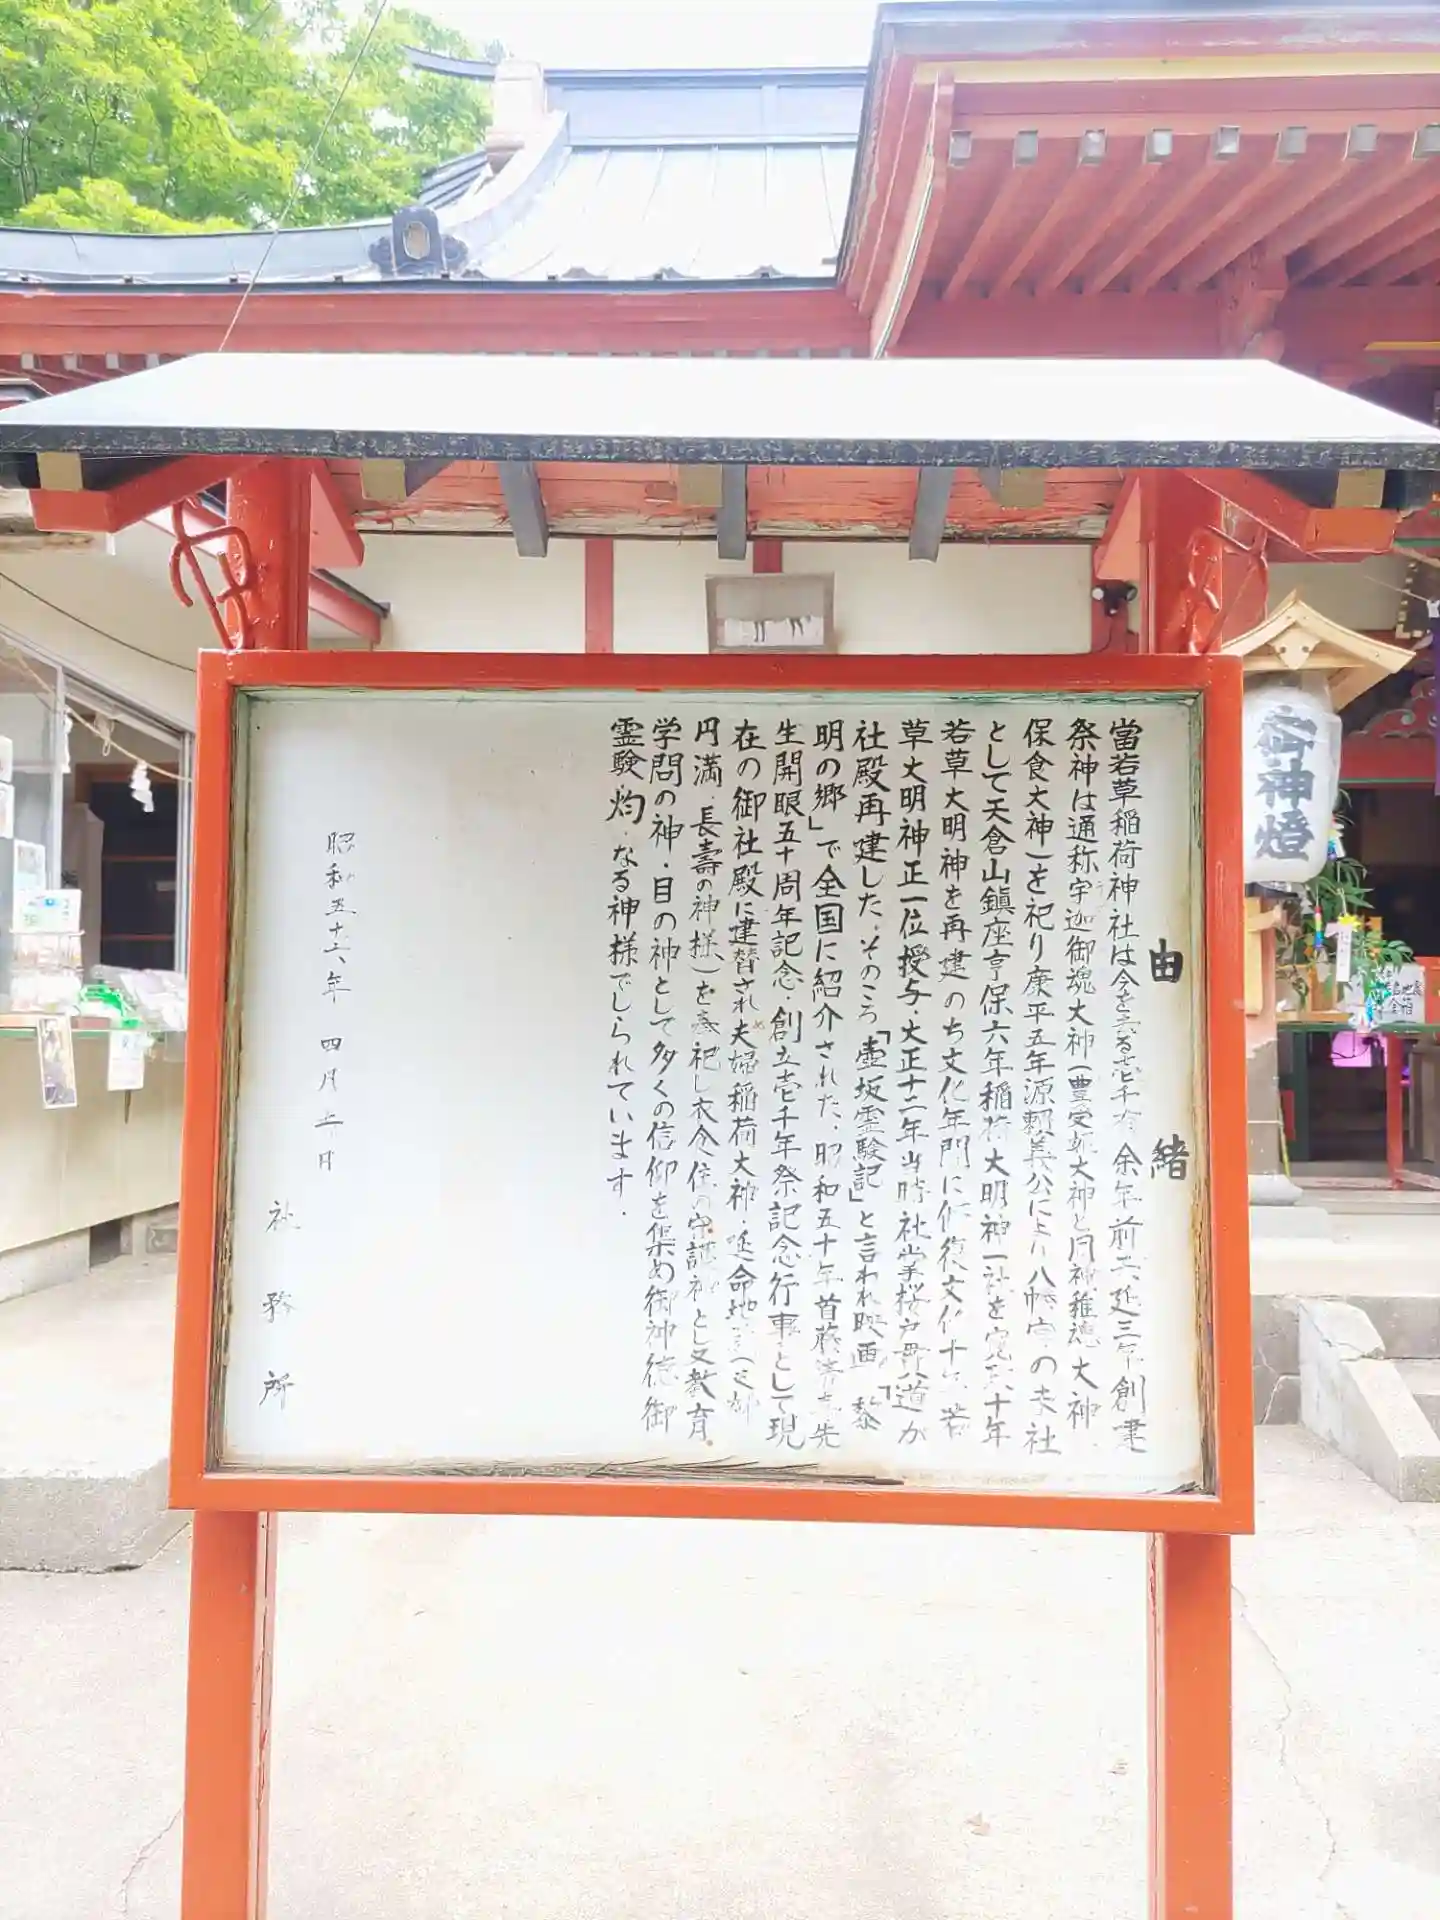 由緒
當若草稲荷神社は今を去る壱千有余年前 延三年創建
祭神は通称宇迦御魂大神(豊受姫大神と同神稚魂大神
保食大神)を祀り康平五年源頼義公により八幡宮の末社
として天倉山鎮座亨保六年稲荷大明神一社を 十年
若草大明神を再建のち文化年間に修復文化十 年若
草大明神正一位授与.大正十二年当時社掌桜 道が
社殿再建した.そのころ「壷坂霊験記」と言われ映画「黎
明の郷」で全国に紹介された.昭和五十年首藤 先
生開眼五十周年記念.創立壱千年祭記念行事として現
在の御社殿に建替され夫婦稲荷大神.延命地
円満.長壽の神様)を 祀し衣食住の守護神とし又教育.
学問の神.目の神として多くの信仰を集め御神徳御
霊験.灼.なる神様でしられています.
昭和五十六年 四月 日
社務所
御神燈